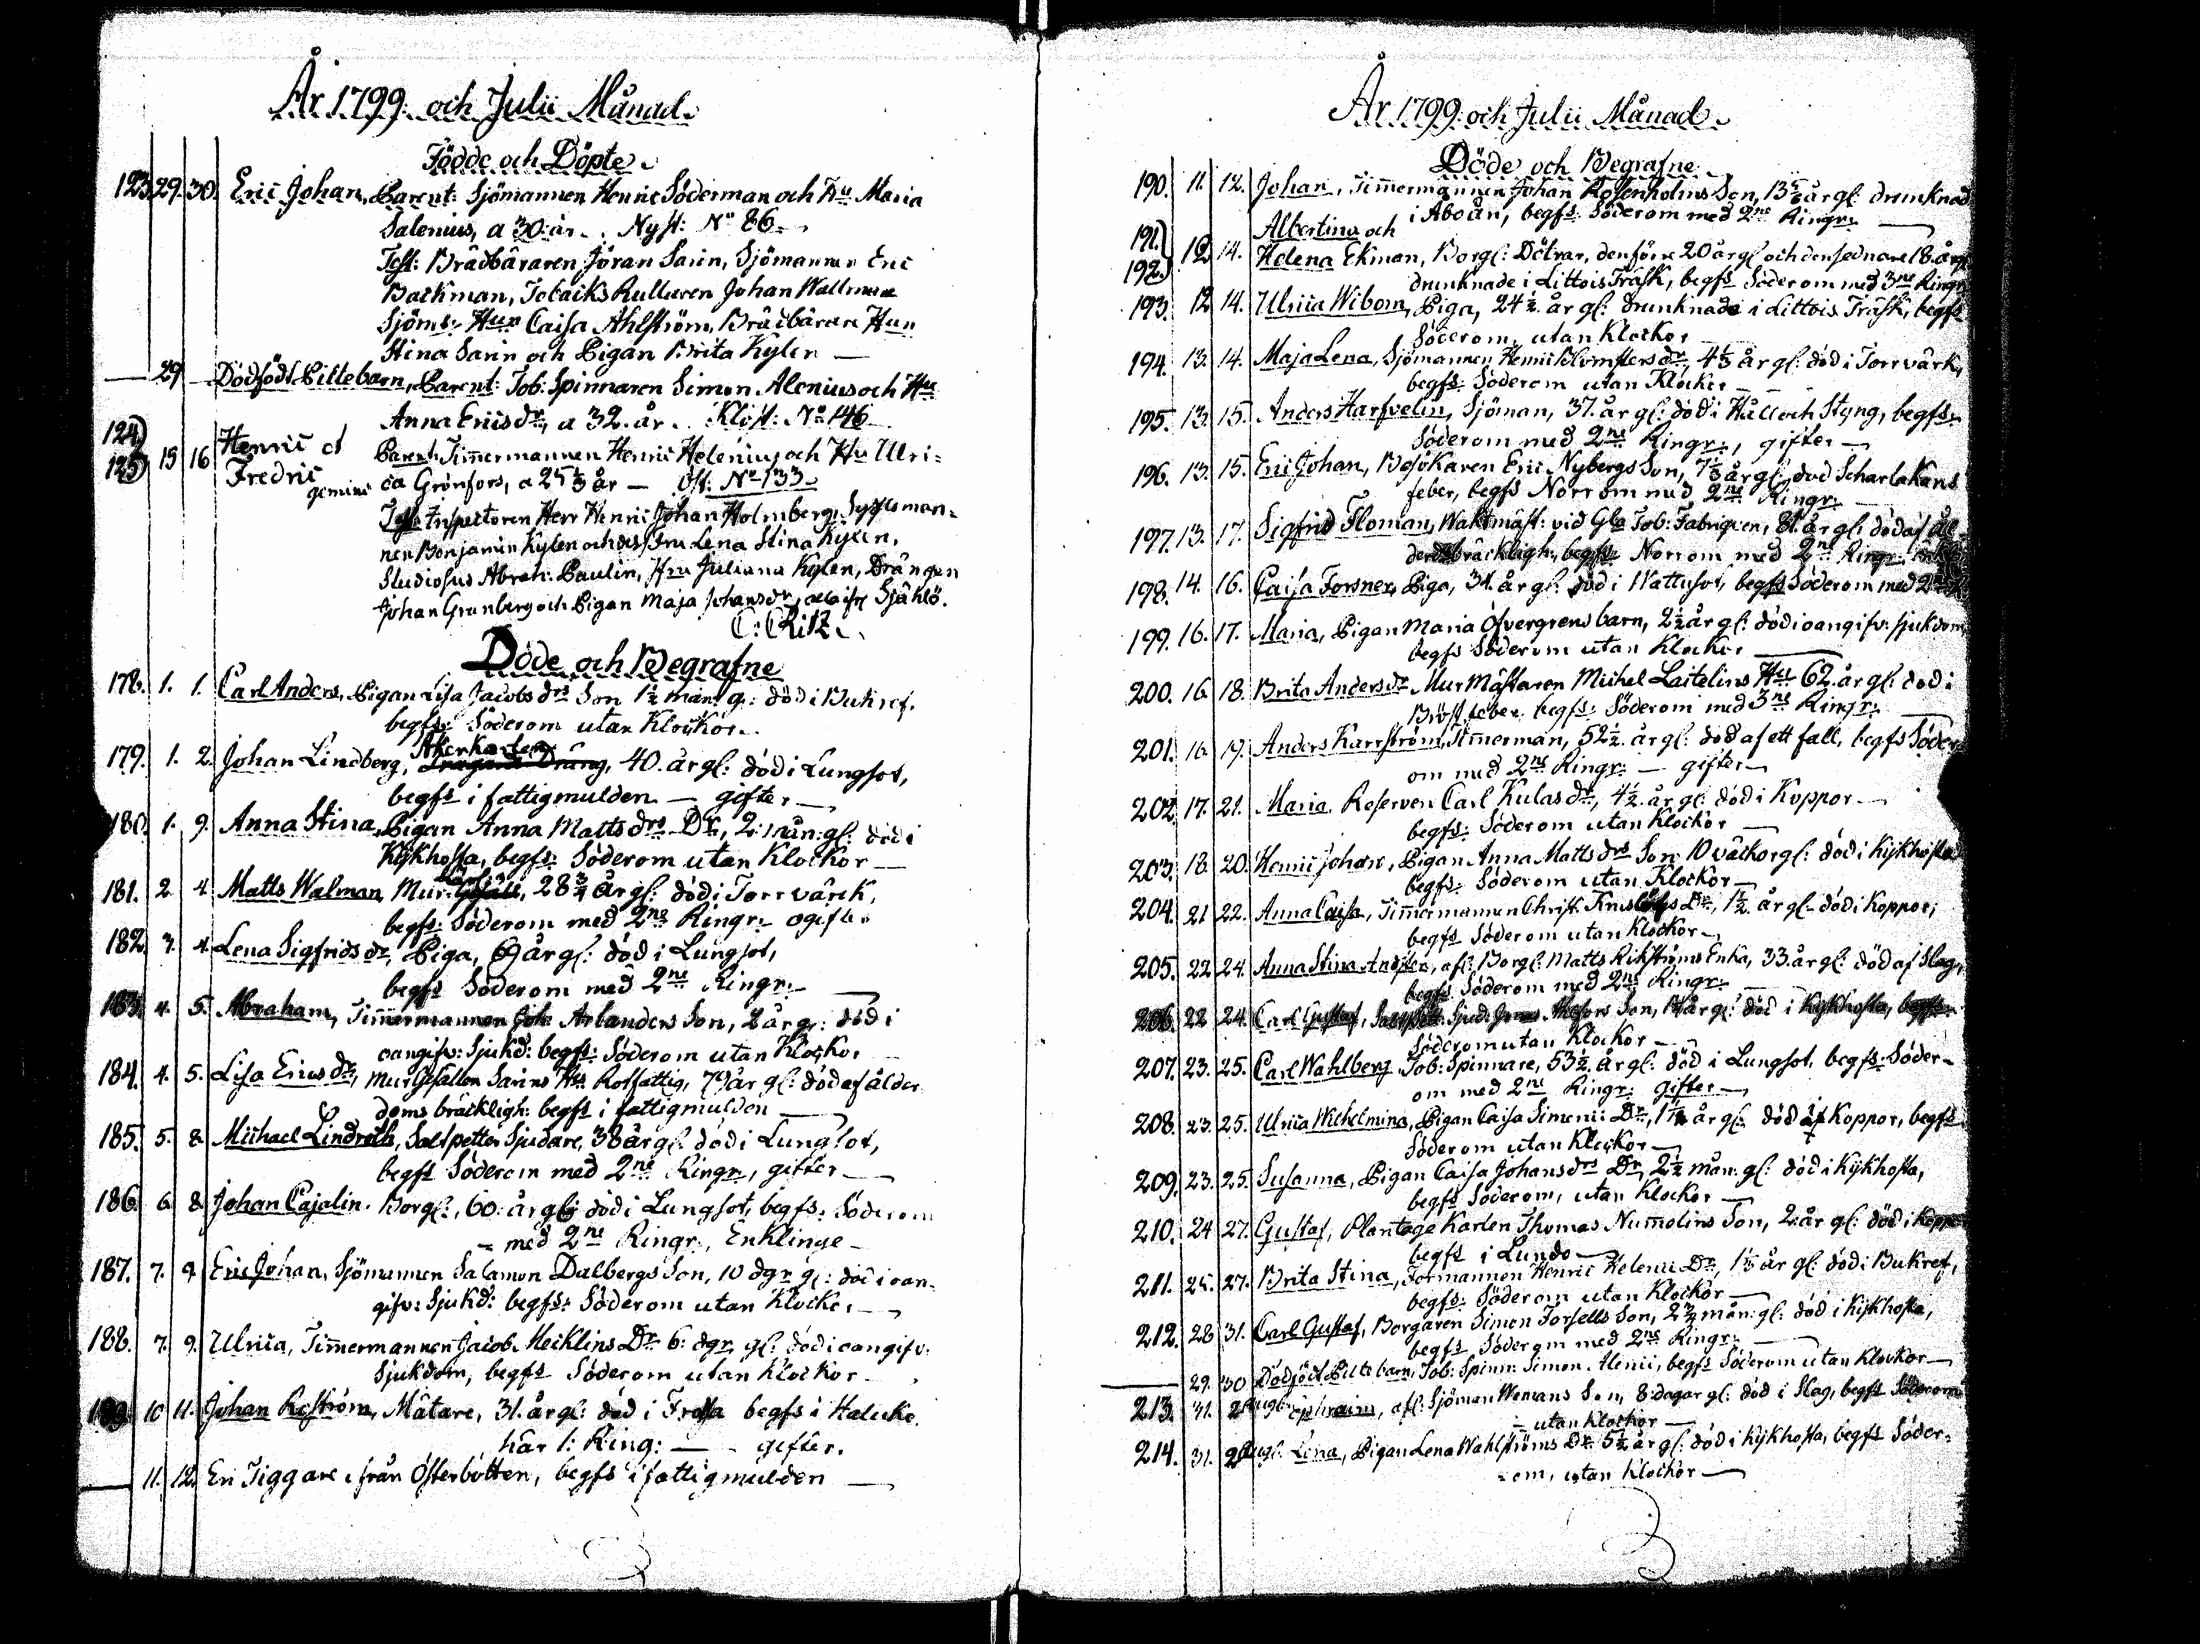 År 1799: och Julii Månad.
Födde och Döpte.
123. 29. 30. Eric Johan, Parent: Sjömannen Henric Söderman och Hu Maria
Salenius, a 30 år. Nyst: No 86.
Test: Brädbäraren Jöran Sarin, Sjömannen Eric
Backman, Tobaiks Rullaren Johan Wallman
Sjöms: Hun Caisa Ahlström, Brädbärare Hun
Stina Sarin och Pigan Brita Kylen —
— 29 — Dödfödt Piltebarn, Parent: Tob: Spinnaren Simon Alenius och Hu
Anna Ericsdr, a 32. år. Klost: No 146
124) 125) 15 16 Henric et Parent: Timmermannen Henric Helenius och Hu Ulri-
Fredric gemini ca Grönfors, a 25 1/3 år — Öst: No 133
Test: Inspectoren Herr Henric Johan Holmberg, Syssloman-
nen Benjamin Kylen och des Fru Lena Stina Kylen,
Studiosus Abrah: Paulin, Fru Juliana Kylen, Drängen
Johan Granberg och Pigan Maja Johansdr, Själö.
C: Ritz.
Döde och Begrafne
178. 1. 1. Carl Anders, Pigan Lisa Jacobsdrs Son 1 1/2 mån: g: död i Bukref.
begfs: Söderom utan Klockor.
179. 1. 2. Johan Lindberg, Åkerkarlen 40. år gl: död i Lungsot,
begfs i fattigmulden — gifter —
180. 1. 9. Anna Stina, Pigan Anna Mattsdrs Dr, 2: mån: gl: död i
Kijkhosta, begfs: Söderom utan Klockor —
181. 2 4. Matts Walman, Mur 28 3/4 år gl: död i Torrvärck,
begfs: Söderom med 2ne Ringr: ogifter
182. 3. 4. Lena Sigfridsdr, Piga, 69 år gl: död i Lungsot,
begfs Söderom med 2ne Ringr: —
183. 4. 5. Abraham, Timmermannen Joh: Arlanders Son, 2 år g: död i
oangifv: Sjukd: begfs: Söderom utan Klockor
184. 4. 5. Lisa Ericsdr, Mur Gesällen Sarins Hu Rotfattig, 79 år gl: död af ålder
doms bräckligh: begfs i fattigmulden —
185. 5. 8. Michael Lindroth, Salspetter Sjudare, 38 år gl: död i Lungsot,
begfs Söderom med 2ne Ringr, gifter —
186. 6. 8. Johan Cajalin. Borgl:, 60: år gl: död i Lungsot, begfs: Söderom
= med 2ne Ringr, Enklinge —
187. 7. 9. Eric Johan, Sjömannen Salamon Dalbergs Son, 10 dgr gl: död i oan-
gifv: Sjukd: begfs: Söderom utan Klockor —
188. 7. 9. Ulrica, Timmermannen Jacob Mecklins Dr 6: dgr gl: död i oangifv:
Sjukdom, begfs Söderom utan Klockor —
189. 10 11. Johan Reström, Mätare, 31. år gl: död i Frossa begfs i Halicko.
här 1: Ring: — gifter.
— 11. 12. En Tiggare ifrån Österbotten, begfs i fattigmulden —
År 1799: och Julii Månad.
Döde och Begrafne.
190. 11. 12. Johan, Timmermannen Johan Rosenholms Son, 13 år gl: drunknad
i Åboån, begfs: Söderom med 2ne Ringr: —
191.) Albertina och
192.) 12 14. Helena Ekman, Borgl: Dötrar, den förre 20 år gl och den sednare 18. år gl
drunknade i Littois Träsk, begfs Söderom med 3ne Ringr
193. 12 14. Ulrica Wibom, Piga, 24 1/2 år gl: drunknade i Littois Träsk, begfs
Söderom, utan Klockor
194. 13. 14. Maja Lena, Sjömannen Henric Blomsters dr, 4 1/3 år gl: död i Torrvärk,
begfs: Söderom utan Klockor —
195. 13. 15. Anders Harfvelin, Sjöman, 37. år gl: död i Håll och Styng, begfs:
Söderom med 2ne Ringr:, gifter —
196. 13. 15. Eric Johan, Besökaren Eric Nybergs Son, 7 1/3 år gl: död Scharlakans
feber, begfs Norrom med 2ne Ringr: —
197. 13. 17. Sigfrid Floman, Waktmäst: vid Gla Tob: Fabriquen, 81. år gl: död af ål-
bräckligh:, begfs: Norrom med 2ne Ringr:
198. 14. 16. Caisa Forsner, Piga, 31. år gl: död i Wattusot, begfs Söderom med 2ne
199. 16. 17. Maria, Pigan Maria Öfvergrens barn, 2 1/2 år gl: död i oangifv: sjukdom,
begfs Söderom utan Klockor —
200. 16. 18. Brita Andersdr Mur Mästaren Michel Laitelins Hu 62. år gl: död i
Bröst feber, begfs: Söderom med 3ne Ringr: —
201. 16. 19. Anders Karrström, Timmerman, 52 1/2. år gl: död af ett fall, begfs Söder-
om med 2ne Ringr: — gifter —
202. 17. 21. Maria, Reserven Carl Kulas dr, 4 1/2. år gl: död i Koppor —
begfs: Söderom utan Klockor —
203. 18. 20. Henric Johan, Pigan Anna Mattsdrs Son 10 väckor gl: död i Kijkhosta
begfs: Söderom utan Klockor —
204. 21 22. Anna Caisa, Timmermannen Christ: Dr, 1 1/2 år gl: död i Koppor,
begfs Söderom utan Klockor —
205. 22 24. Anna Stina afl: Borgl: Matts Rikströms Enka, 33. år gl: död af Slag,
begfs: Söderom med 2ne Ringr: —
206. 22 24. Carl Gustaf, Sjud: Son, år gl: död i Kijkhosta, begfs:
Söderom utan Klockor —
207. 23. 25. Carl Wahlberg Tob: Spinnare, 53 1/2. år gl: död i Lungsot, begfs: Söder-
om med 2ne Ringr: gifter —
208. 23. 25. Ulrica Wilhelmina, Pigan Caisa Simenii Dr, 1 år gl: död i Koppor, begfs
Söderom utan Klockor —
209. 23. 25. Susanna, Pigan Caisa Johansdrs Dr, 2 1/2 mån: gl: död i Kijkhosta,
begfs Söderom, utan Klockor —
210. 24 27. Gustaf, Plantage Karlen Thomas Nummelins Son, 2: år gl: död i Koppor
begfs i Lundo —
211. 25. 27. Brita Stina, Formannen Henric Helenii Dr, 1 år gl: död i Bukref,
begfs: Söderom utan Klockor —
212. 28 31. Carl Gustaf, Borgaren Simon Forsells Son, 2 3/4 mån: gl: död i Kijkhosta,
begfs: Söderom med 2ne Ringr: —
— 29. 30 Dödfödt Piltebarn, Tob: Spinn: Simon Alenii, begfs Söderom utan Klockor —
213. 31. 2 Augl: Ephraim, afl: Sjöman Wemans Son, 8: dagar gl: död i Slag, begfs Söderom
= utan Klockor —
214. 31. 2 Augl: Lena, Pigan Lena Wahlströms Dr 5 1/2 år gl: död i Kijkhosta, begfs Söder-
= om, utan Klockor —